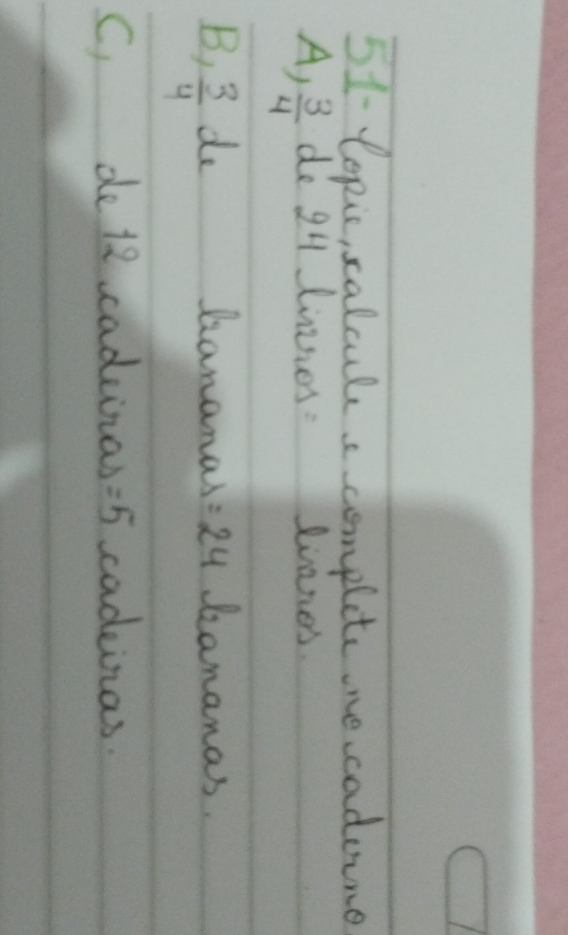 51- Copie, calcule e complete no caderno.
A, 3/4 de 24 livros = livros.
B, 3/4 de bananas = 24 bananas.
C, de 12 cadeiras = 5 cadeiras.